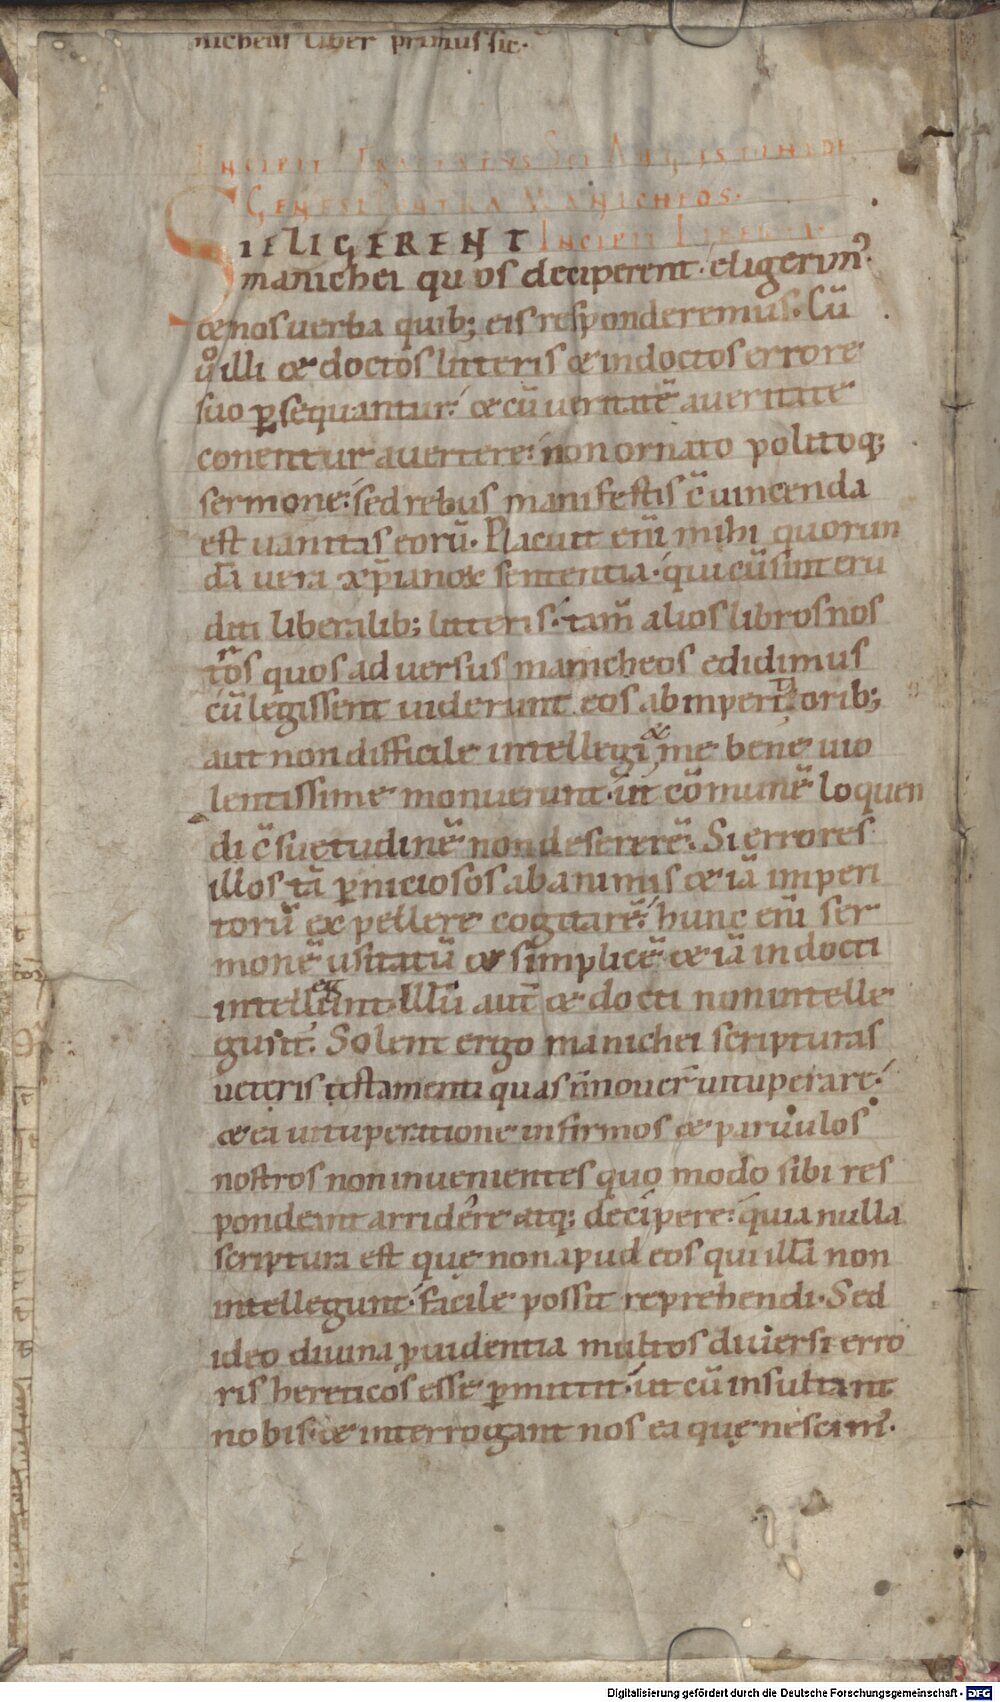 nicheus liber primus sic.
INCIPIT TRACTATUS SCI AUGUSTINI DE
GENESI CONTRA MANICHEOS.
SI ELIGERENT INCIPIT LIBER I.
manichei quos deciperent. eligerim᾽
&nos uerba quib; eis responderemus. Cū
uͦ illi & doctos litteris & indoctos errore
suo ꝑsequantur. & cū ueritatē a ueritate
conentur auertere. non ornato politoq;
sermone. sed rebus manifestis c̄uincenda
est uanitas eorū. Placuit eni̅ mihi quorun
dā uera xp̄ianoꝝ sententia. qui cū sint eru
diti liberalib; litteris. tam̄ alios libros nos
tros quos aduersus manicheos edidimus
cū legissent uiderunt eos ab inperitiorib;
aut non difficile intellegi & me beneuio
lentissime monuerunt. ut cōmunē loquen
di c̄suetudinē non desererē. Si errores
illos tā ꝑniciosos ab animis & iā imperi
torū expellere cogitarē. hunc eni̅ ser
monē usitatū & simplicē & iā indocti
intellegunt. Illū aut̄ & docti non intelle
gunt. Solent ergo manichei scripturas
ueteris testamenti quas n̄ nouer̄ uituperare.
& ea uituperatione infirmos & paruulos
nostros non inuenientes quo modo sibi res
pondeant arridere atq; decipere. quia nulla
scriptura est quę non apud eos qui illā non
intellegunt. facile possit reprehendi. Sed
ideo diuina ꝓuidentia multos diuersi erro
ris hereticos esse ꝑmittit. ut cū insultant
nobis. & interrogant nos ea quę nescim᾽.
Digitalisierung gefördert durch die Deutsche Forschungsgemeinschaft - DFG